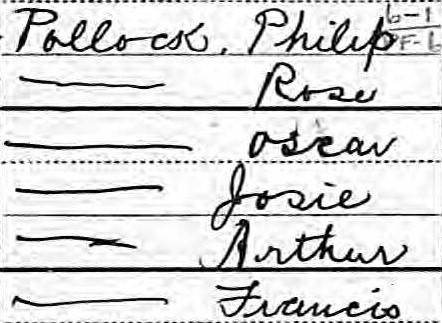 Pollock, Philip 6-1
F-6
— Rose
— Oscar
— Josie
— Arthur
— Francis